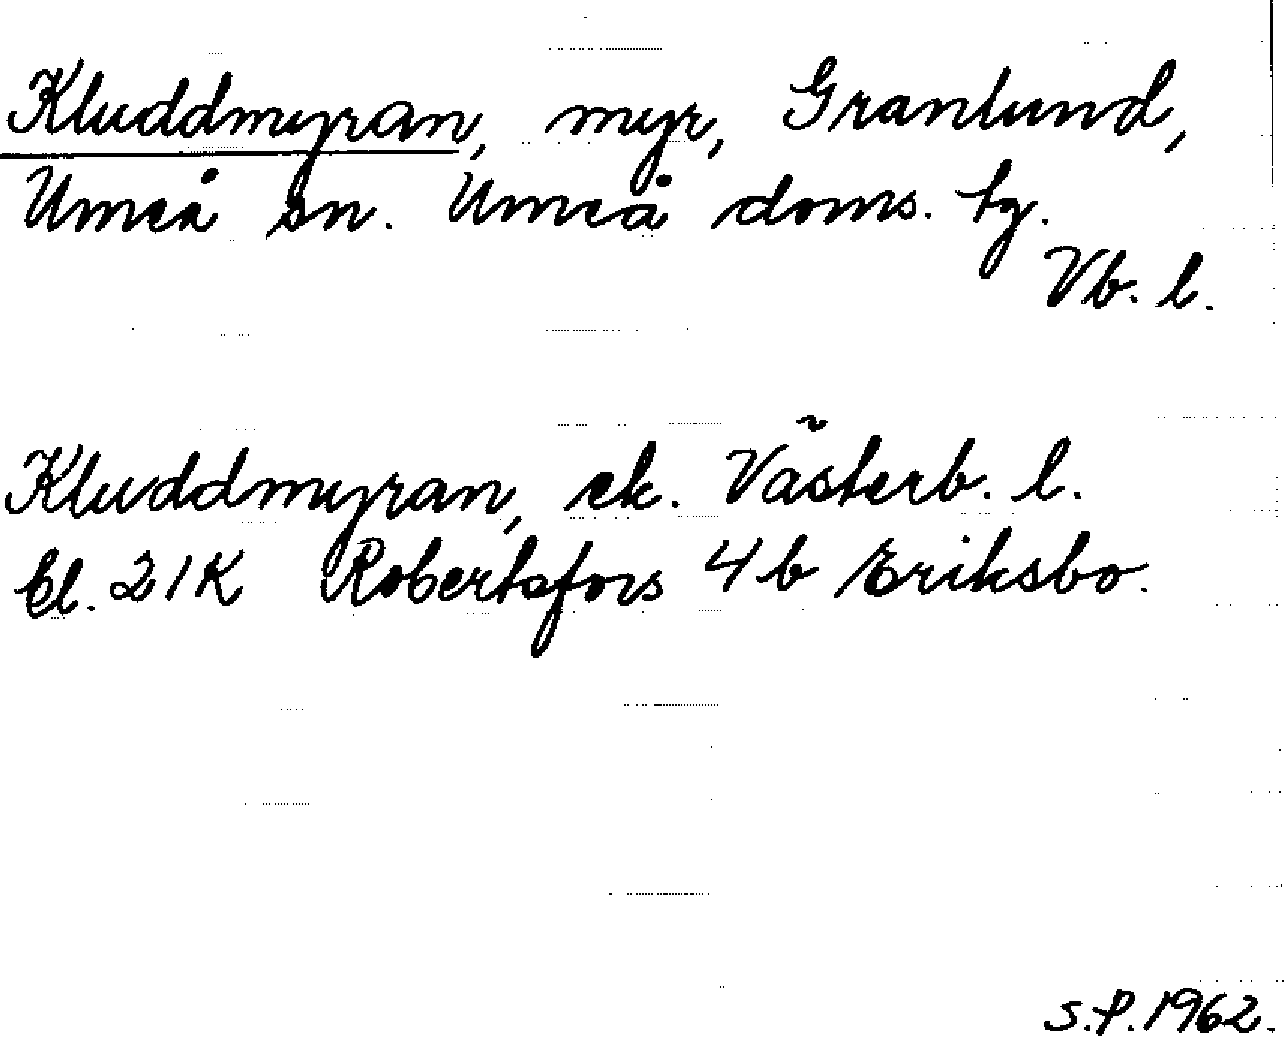 Kluddmyran, myr, Granlund,
Umeå sn. Umeå doms. tg.
Vb. l.
Kluddmyran, ek. Västerb. l.
bl. 21K Robertsfors 4b Eriksbo.
S.P. 1962.